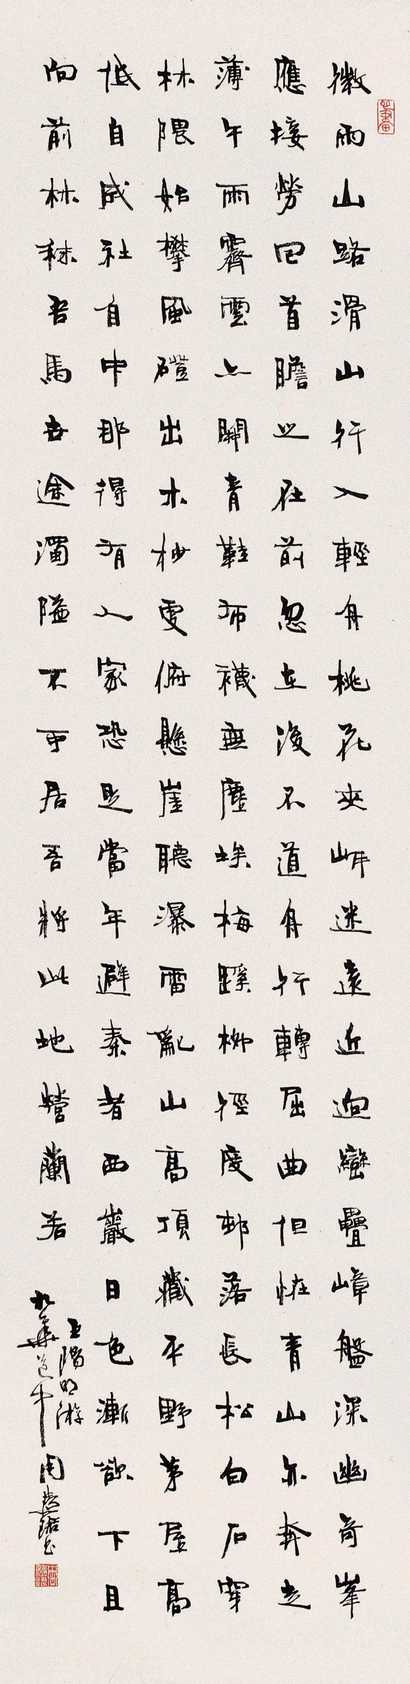 微雨山路滑山行入輕舟桃花夾岸迷遠近迴巒疊嶂盤深幽奇峯
應接勞回首瞻之在前忽在後不道舟行轉屈曲但怪青山亦奔走
薄午雨霽雲亦開青鞋布襪無塵埃梅蹊柳徑度邨落長松白石穿
林隈始攀風磴出木杪更俯懸崖聽瀑雷亂山高頂藏平野茅屋高
低自成社自中那得有人家恐是當年避秦者西巖日色漸欲下且
向前林秣吾馬吾途濁隘不可居吾將此地營蘭若
王陽明游
九華道中 周慧珺書